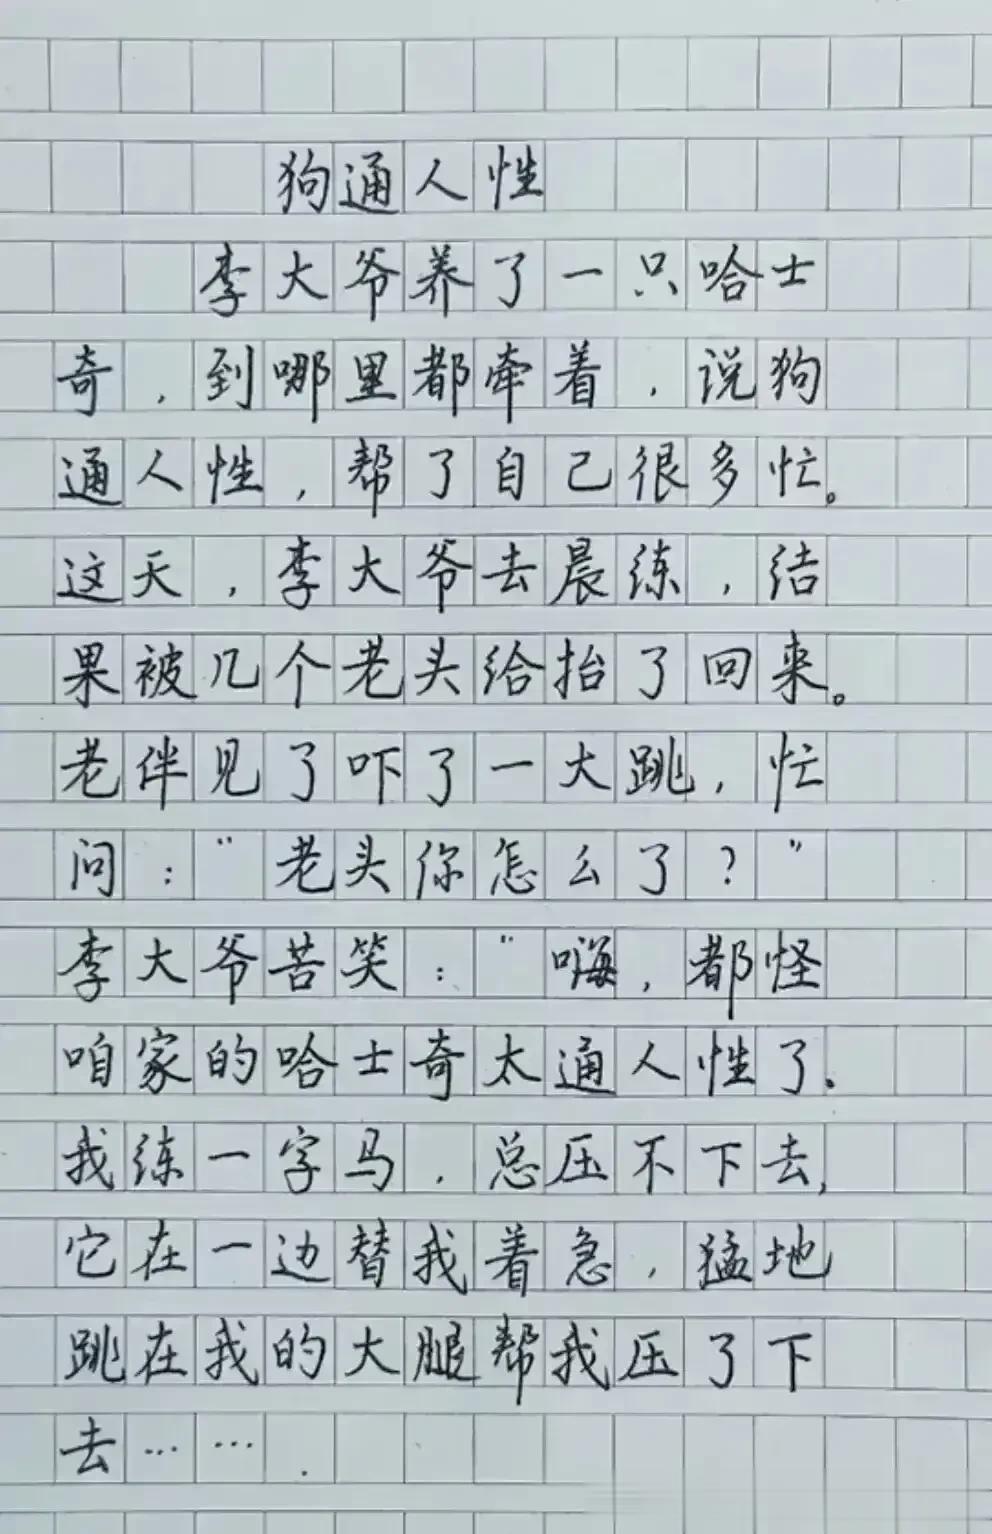 狗通人性
李大爷养了一只哈士
奇，到哪里都牵着，说狗
通人性，帮了自己很多忙。
这天，李大爷去晨练，结
果被几个老头给抬了回来。
老伴见了吓了一大跳，忙
问：“老头你怎么了？”
李大爷苦笑：“嗨，都怪
咱家的哈士奇太通人性了.
我练一字马，总压不下去，
它在一边替我着急，猛地
跳在我的大腿帮我压了下
去……